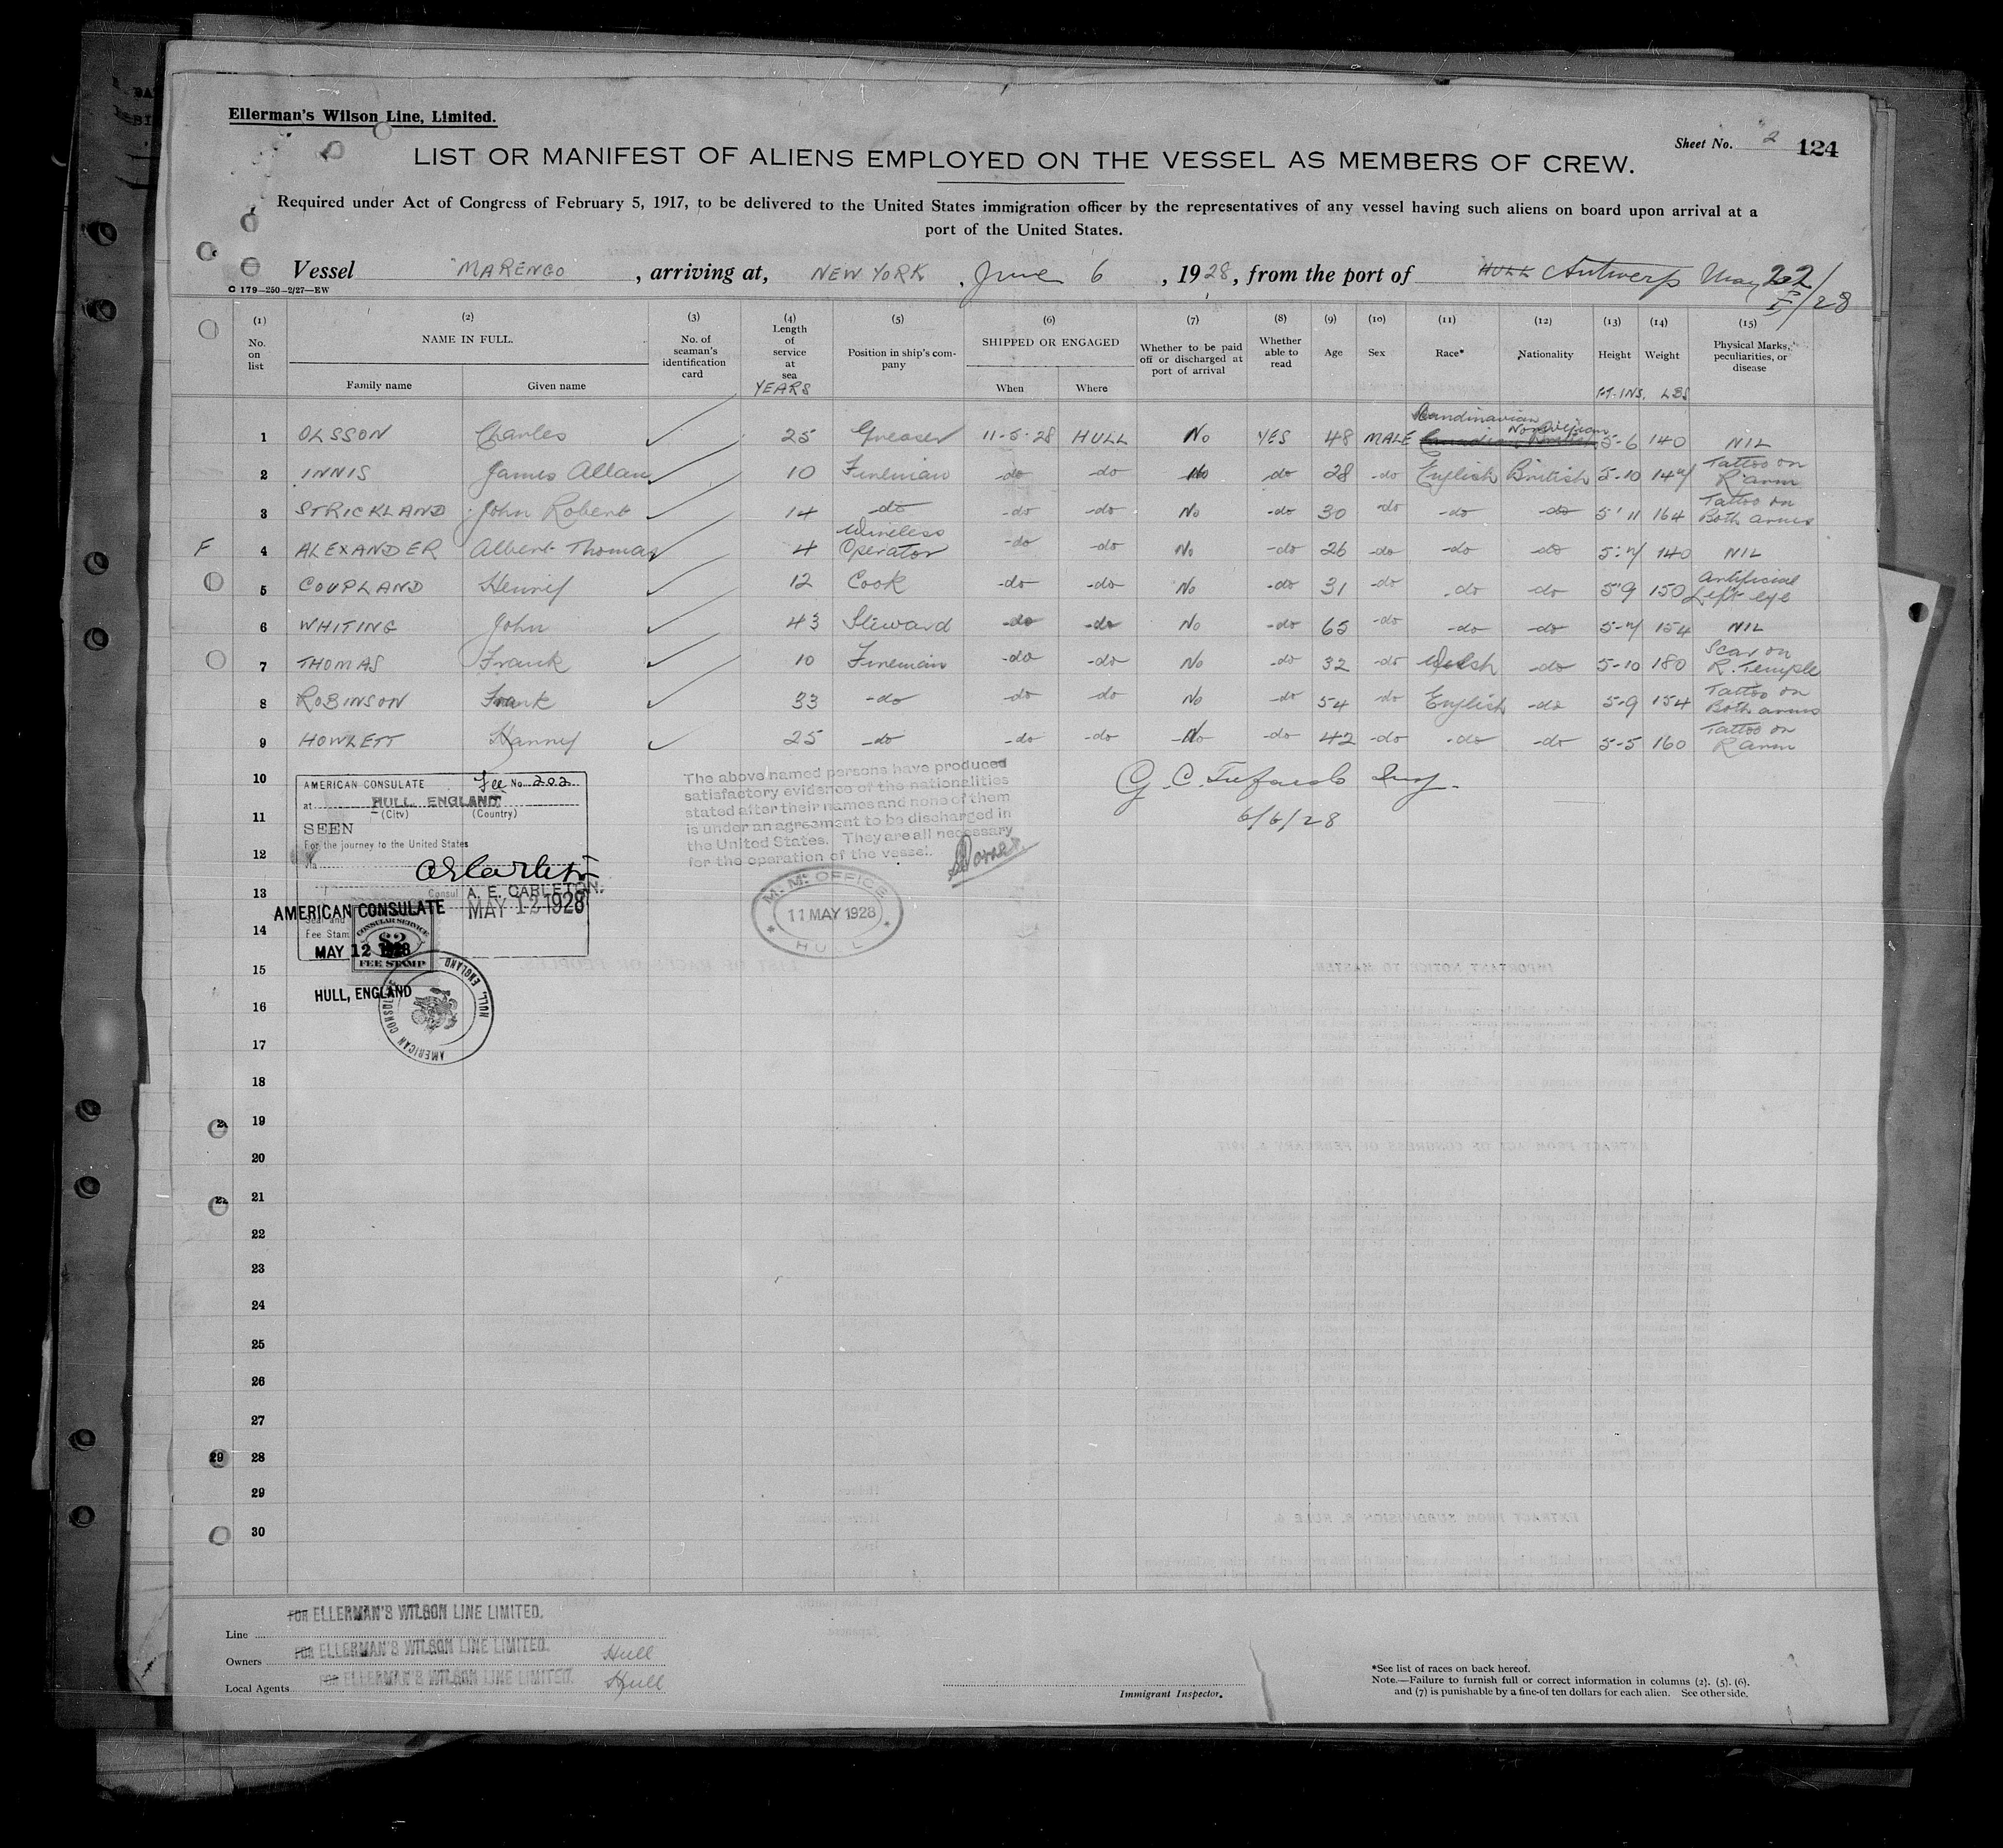 Ellerman's Wilson Line, Limited.
Sheet No. 2 124
LIST OR MANIFEST OF ALIENS EMPLOYED ON THE VESSEL AS MEMBERS OF CREW.
Required under Act of Congress of February 5, 1917, to be delivered to the United States immigration officer by the representatives of any vessel having such aliens on board upon arrival at a
port of the United States.
Vessel "MARENGO , arriving at, NEW YORK , June 6 , 1928, from the port of HULL Antwerp May 22/28
C 179-250-2/27-EW
(1) (2) (3) (4) (5) (6) (7) (8) (9) (10) (11) (12) (13) (14) (15)
No. on list NAME IN FULL. Family name Given name No. of seaman's identification card Length of service at sea YEARS Position in ship's company SHIPPED OR ENGAGED When Where Whether to be paid off or discharged at port of arrival Whether able to read Age Sex Race* Nationality Height FT. INS. Weight LBS Physical Marks, peculiarities, or disease
1 OLSSON Charles 25 Greaser 11-5-28 HULL No YES 48 MALE Scandinavian Norwegian 5-6 140 NIL
2 INNIS James Allan 10 Fireman -do -do No -do 28 -do English British 5-10 147 Tattoo on R arm
3 STRICKLAND John Robert 14 -do -do -do No -do 30 -do -do -do 5'11 164 Tattoo on Both arms
F 4 ALEXANDER Albert Thomas 4 Wireless Operator -do -do No -do 26 -do -do -do 5:7 140 NIL
5 COUPLAND Henry 12 Cook -do -do No -do 31 -do -do -do 5'9 150 Artificial Left eye
6 WHITING John 43 Steward -do -do No -do 65 -do -do -do 5-7 154 NIL
7 THOMAS Frank 10 Fireman -do -do No -do 32 -do Welsh -do 5-10 180 Scar on R. Temple
8 ROBINSON Frank 33 -do -do -do No -do 54 -do English -do 5-9 154 Tattoo on Both arms
9 HOWLETT Harry 25 -do -do -do No -do 42 -do -do -do 5-5 160 Tattoo on R arm
10
11
12
13
14
15
16
17
18
19
20
21
22
23
24
25
26
27
28
29
30
29
AMERICAN CONSULATE Fee No. 202
at HULL, ENGLAND
(City) (Country)
SEEN
For the journey to the United States
Consul A. E. CARLETON.
MAY 12 1928
Seal and
Fee Stamp
AMERICAN CONSULATE
MAY 12 1928
HULL, ENGLAND
CONSULAR SERVICE
$2
FEE STAMP
AMERICAN CONSULATE HULL, ENGLAND
The above named persons have produced
satisfactory evidence of the nationalities
stated after their names and none of them
is under an agreement to be discharged in
the United States. They are all necessary
for the operation of the vessel.
M. M. OFFICE
11 MAY 1928
HULL
6/6/28
Line FOR ELLERMAN'S WILSON LINE LIMITED.
Owners FOR ELLERMAN'S WILSON LINE LIMITED. Hull
Local Agents FOR ELLERMAN'S WILSON LINE LIMITED. Hull
Immigrant Inspector.
*See list of races on back hereof.
Note.—Failure to furnish full or correct information in columns (2), (5), (6),
and (7) is punishable by a fine of ten dollars for each alien. See other side.